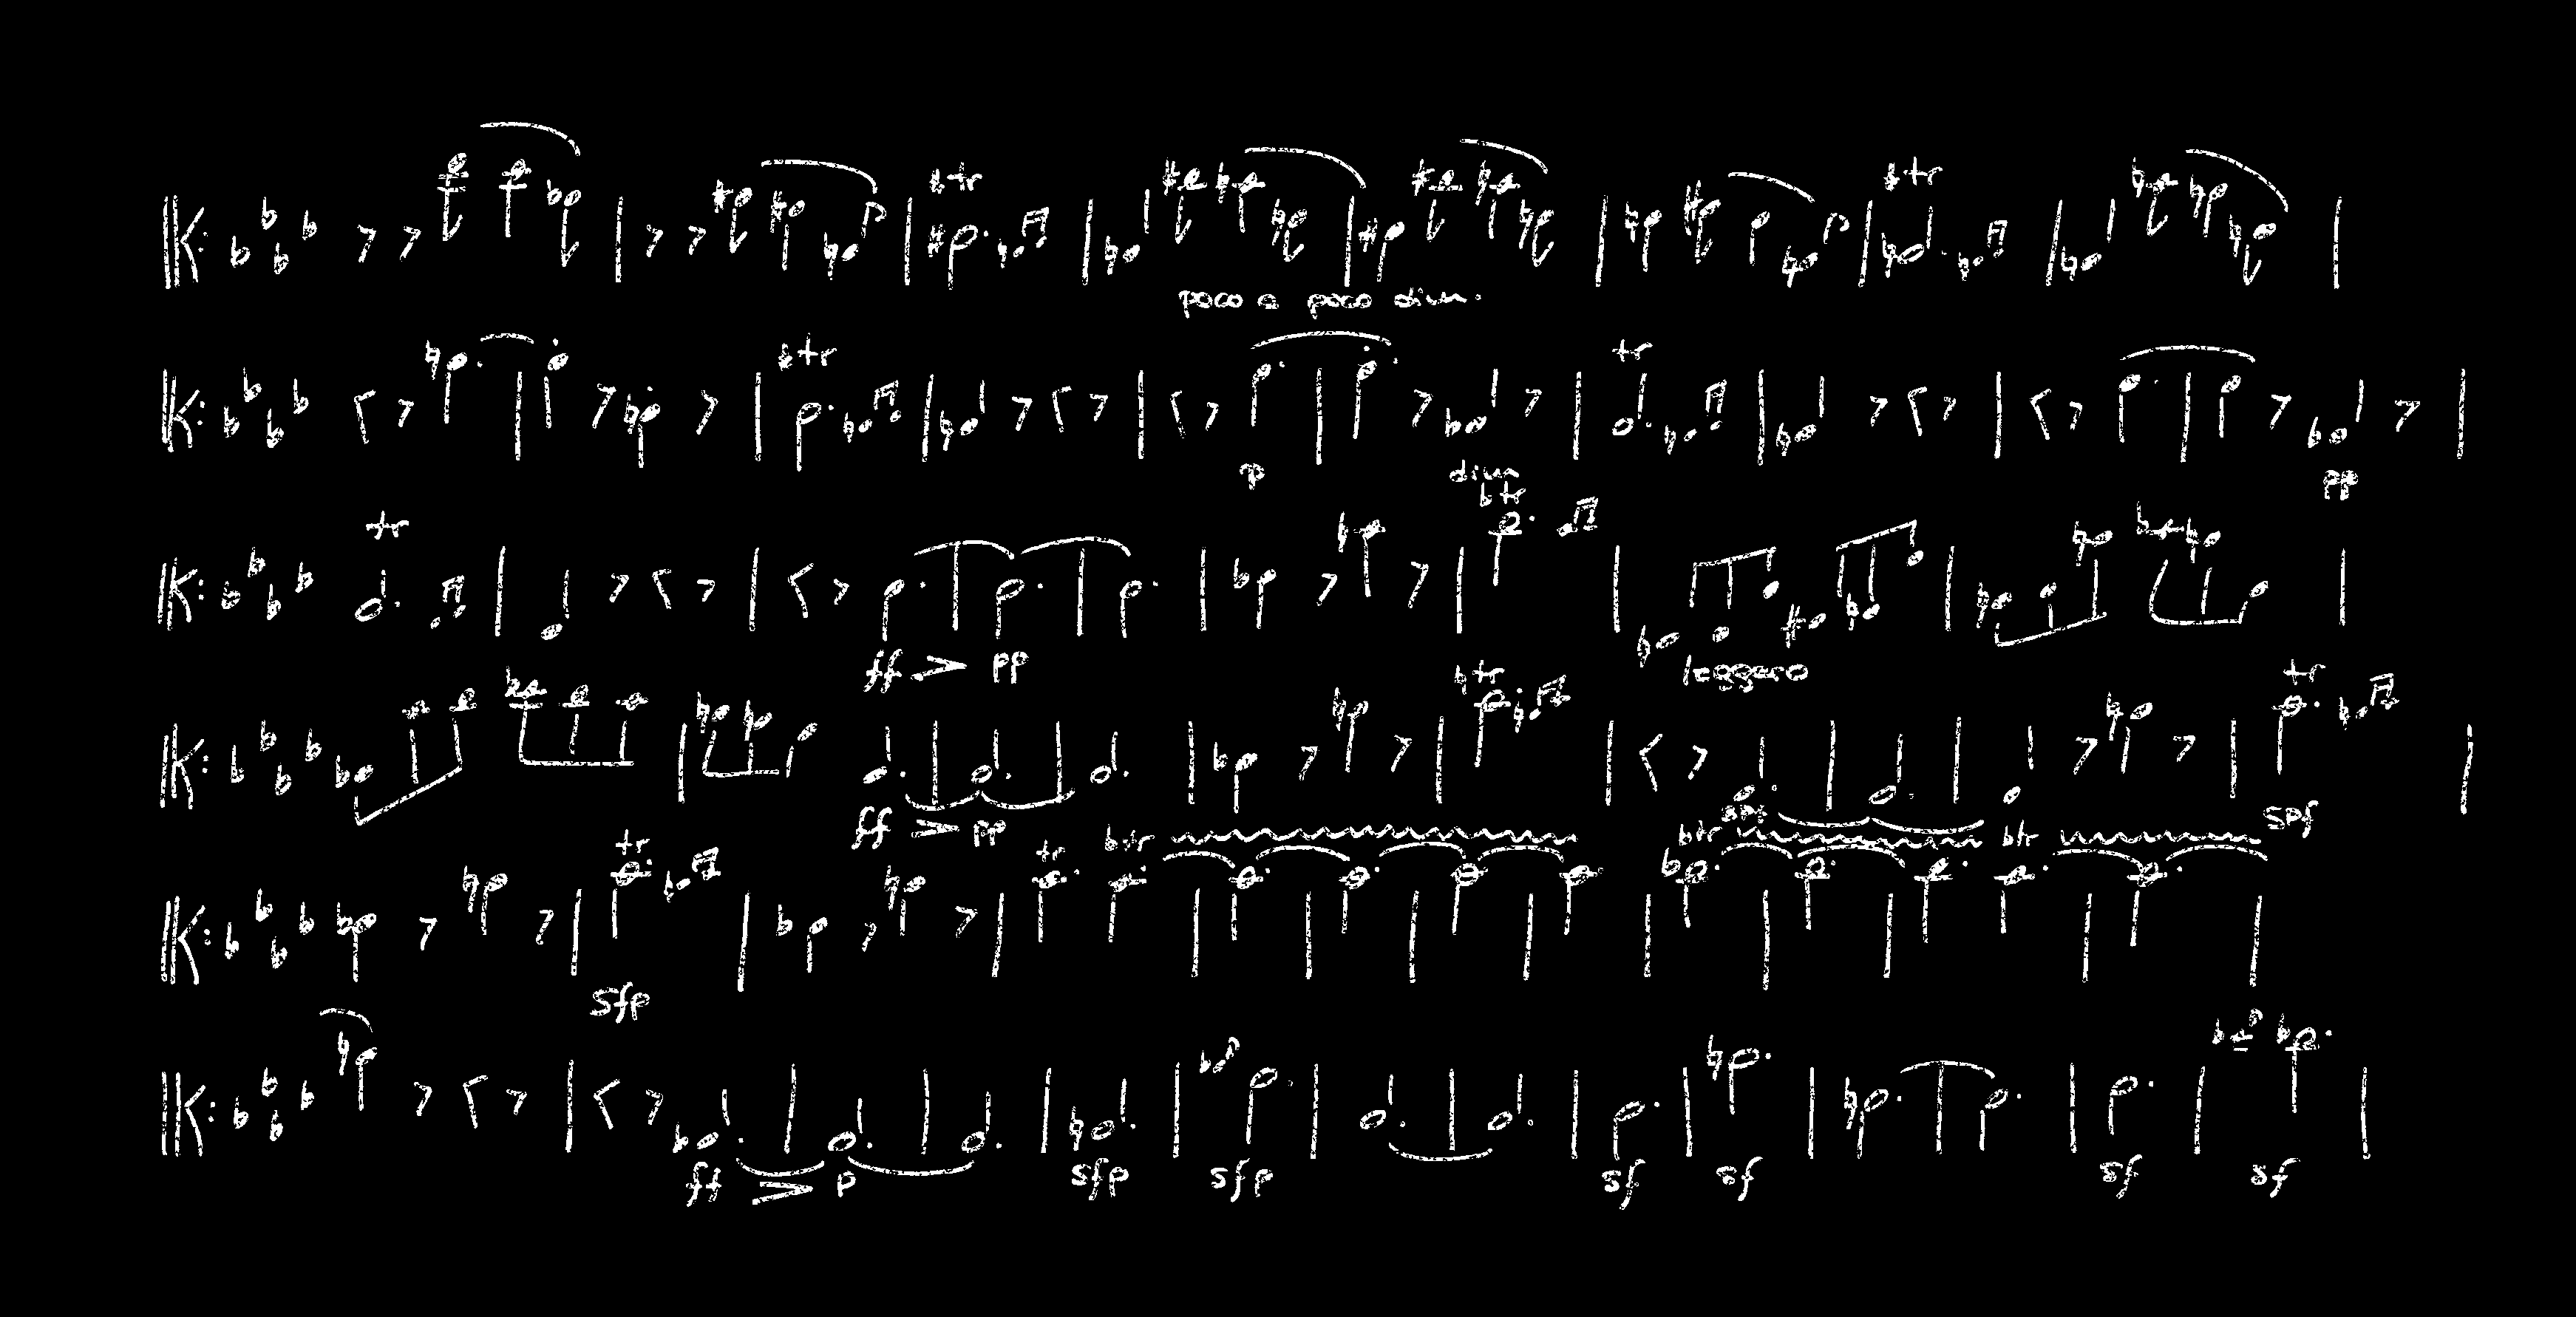 tr tr
poco a poco dim.
tr tr
p dim pp
tr tr
ff pp leggero
tr tr
ff pp spf spf
tr tr tr tr tr
sfp
ff p sfp sfp sf sf sf sf